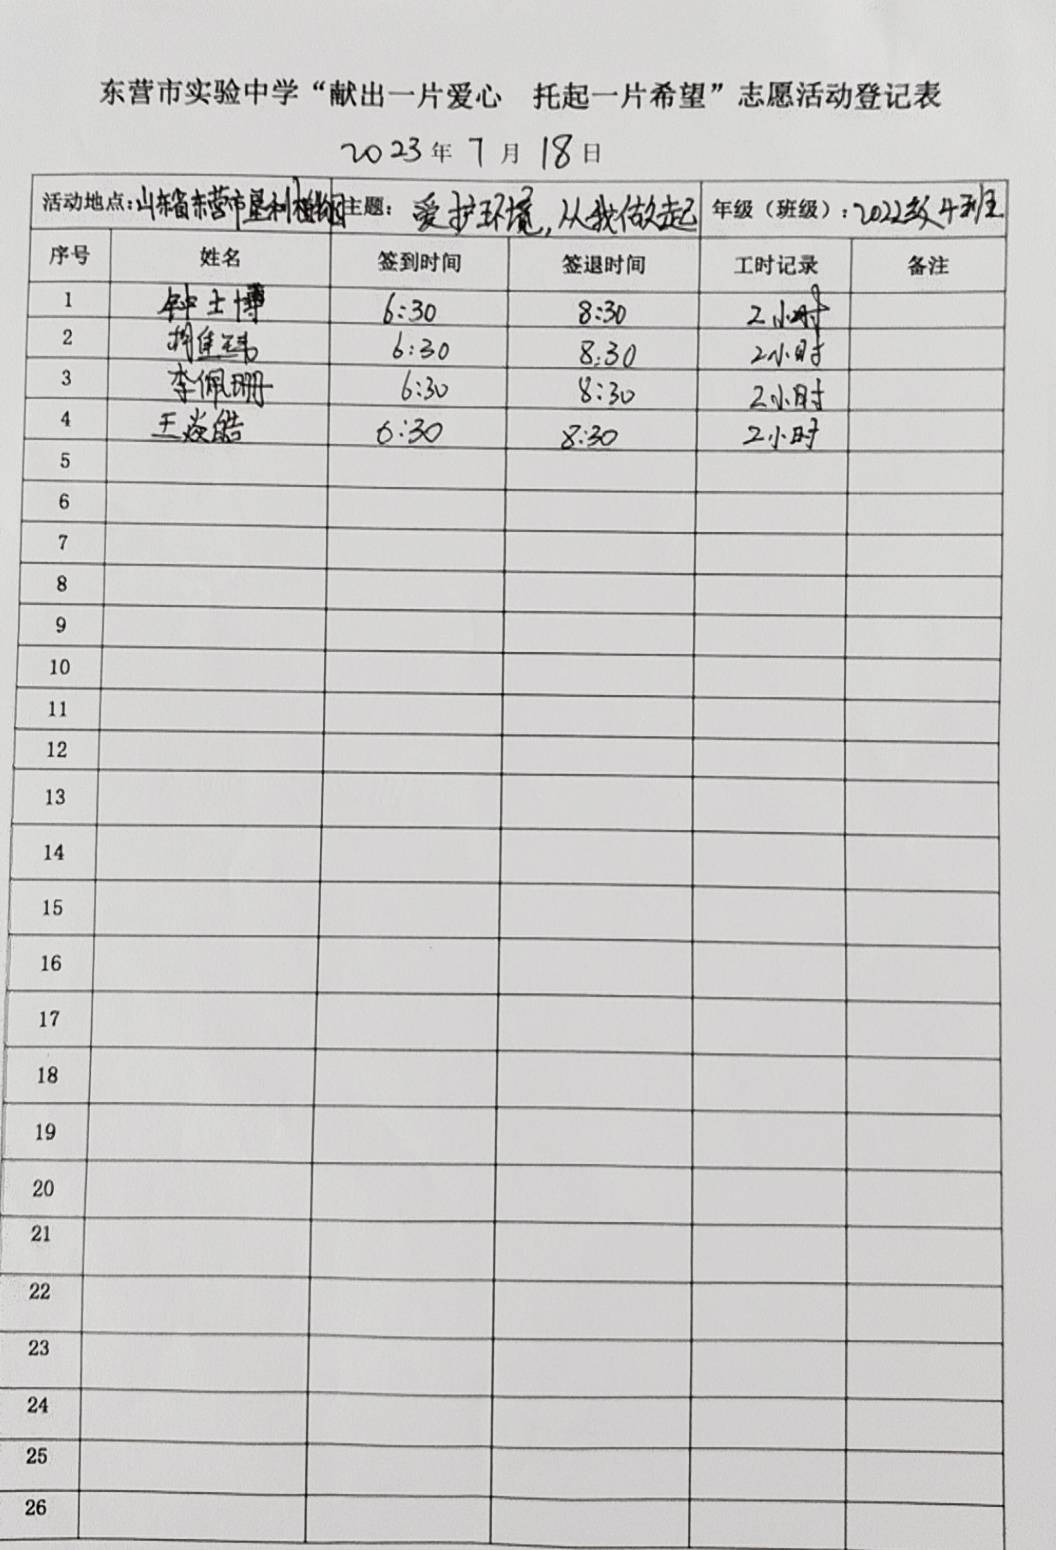 东营市实验中学“献出一片爱心 托起一片希望”志愿活动登记表
2023年 7月 18日
活动地点:山东省东营市垦利 主题: 爱护环境,从我做起 年级（班级）:2022级4班
序号 姓名 签到时间 签退时间 工时记录 备注
1 钟士博 6:30 8:30 2小时
2 6:30 8:30 2小时
3 李佩珊 6:30 8:30 2小时
4 王焱皓 6:30 8:30 2小时
5
6
7
8
9
10
11
12
13
14
15
16
17
18
19
20
21
22
23
24
25
26